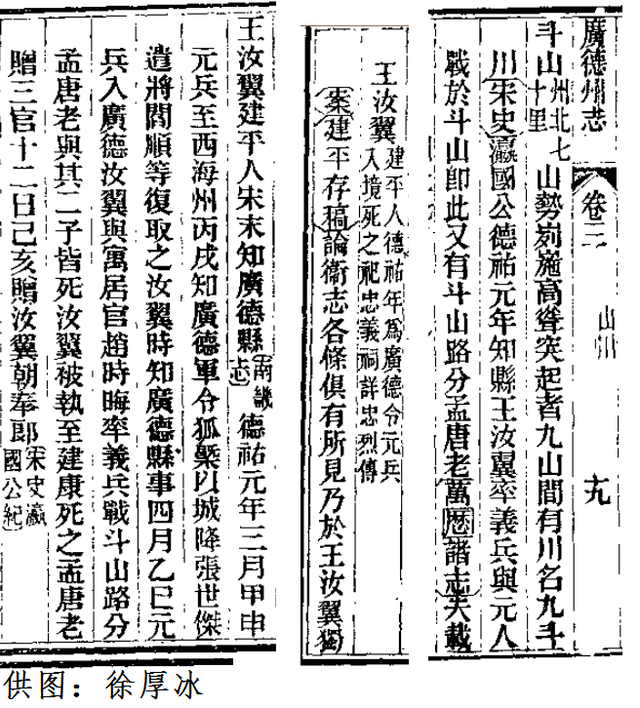 廣德州志 卷二 山川 十九
斗山州北七十里山勢峛崺高聳突起者九山間有川名九斗
川宋史瀛國公德祐元年知縣王汝翼率義兵與元人
戰於斗山即此又有斗山路分孟唐老萬歷諸志失載
王汝翼建平人德祐年爲廣德令元兵入境死之祀忠義祠詳忠烈傳
案建平存稿論衞志各條俱有所見乃於王汝翼獨
王汝翼建平人宋末知廣德縣南畿志德祐元年三月甲申
元兵至西海州丙戌知廣德軍令狐槩以城降張世傑
遣將閻順等復取之汝翼時知廣德縣事四月乙巳元
兵入廣德汝翼與寓居官趙時晦率義兵戰斗山路分
孟唐老與其二子皆死汝翼被執至建康死之孟唐老
贈三官十二日己亥贈汝翼朝奉郎宋史瀛國公紀
供图：徐厚冰